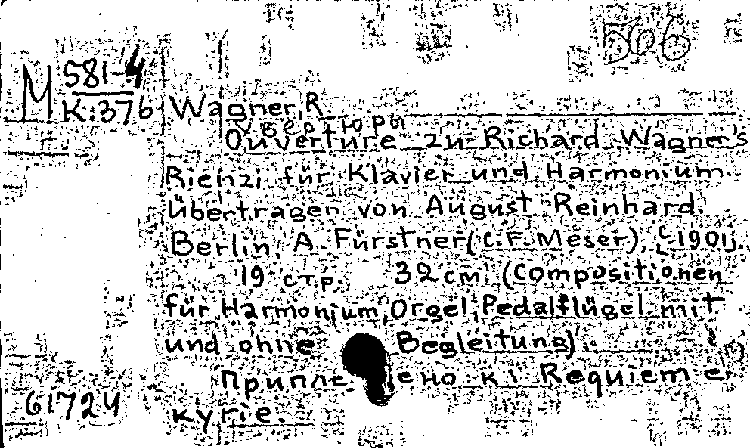 506
М 581-4
К:376
Wagner, R.
Увертюры
Ouverture zu Richard Wagner's
Rienzi für Klavier und Harmonium
übertragen von August Reinhard.
Berlin, A. Fürstner (C.F. Meser), [1901].
19 стр. 32 см. (Compositionen
für Harmonium, Orgel, Pedalflügel mit
und ohne Begleitung).
Приплетено к: Requiem e
kyrie.
61724